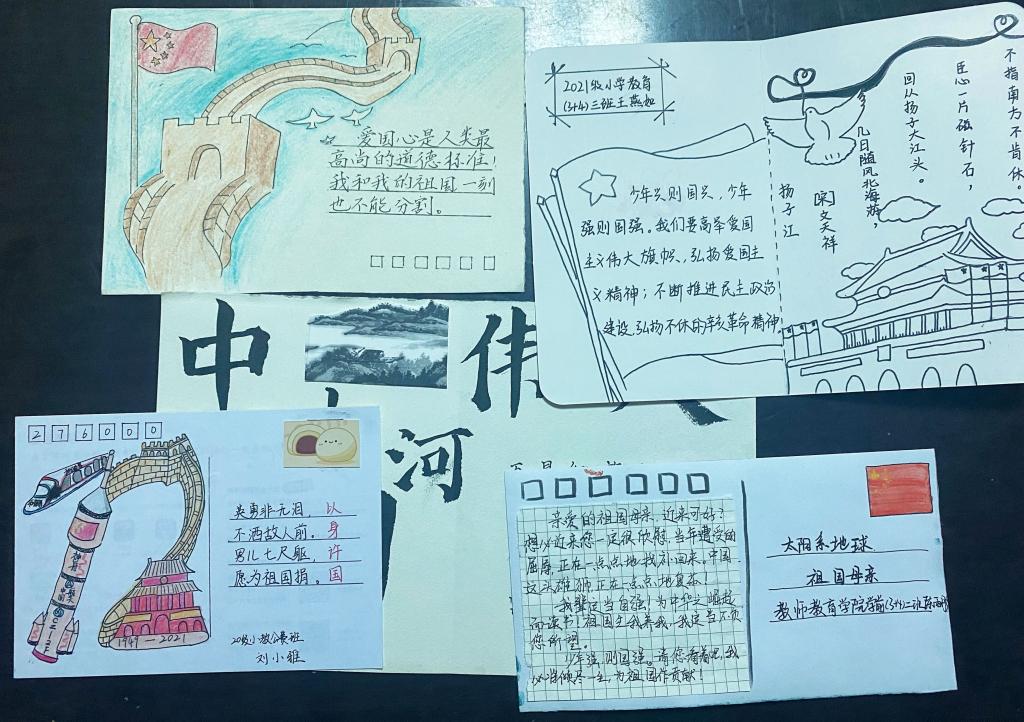 爱国心是人类最
高尚的道德标准！
我和我的祖国一刻
也不能分割。
2021级小学教育
(3+4)三班王燕如
少年兴则国兴，少年
强则国强。我们要高举爱国
主义伟大旗帜、弘扬爱国主
义精神；不断推进民主政治
建设，弘扬不休的辛亥革命精神
扬子江
[宋]文天祥
几日随风北海游，
回从扬子大江头。
臣心一片磁针石，
不指南方不肯休。
中
伟
河
276000
英勇非无泪，以
不洒故人前。身
男儿七尺躯，许
愿为祖国捐。国
1949—2021
20级小教公费班
刘小雅
亲爱的祖国母亲，近来可好？
想必近来您一定很欣慰，当年遭受的
屈辱，正在一点点地找补回来。中国
这头雄狮，正在一点点地复苏！
我辈定当自强，为中华之崛起
而读书！祖国生我养我，我定当不负
您所望。
少年强，则国强。请您看着吧，我
必将倾尽一生，为祖国作贡献！
太阳系地球
祖国母亲
教师教育学院学前(3+4)二班